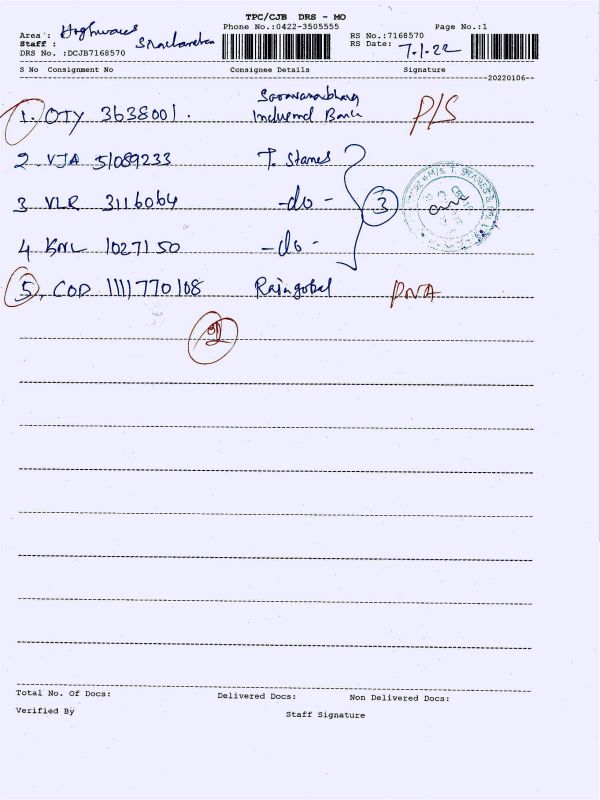 TPC/CJB DRS - MO
Phone No.:0422-3505555 Page No.:1
Area :
Staff :
DRS No. :DCJB7168570
RS No.:7168570
RS Date: 7.1.22
S No Consignment No Consignee Details Signature
20220106
1. OTY 3638001. Bank P/S
2 VJA 51089233 T. Stanes
3 VLR 3116064 -do- 3
4 KNL 1027150 -do-
5, COD 1111770108 Rajagopal DNA
Total No. Of Docs: Delivered Docs: Non Delivered Docs:
Verified By Staff Signature